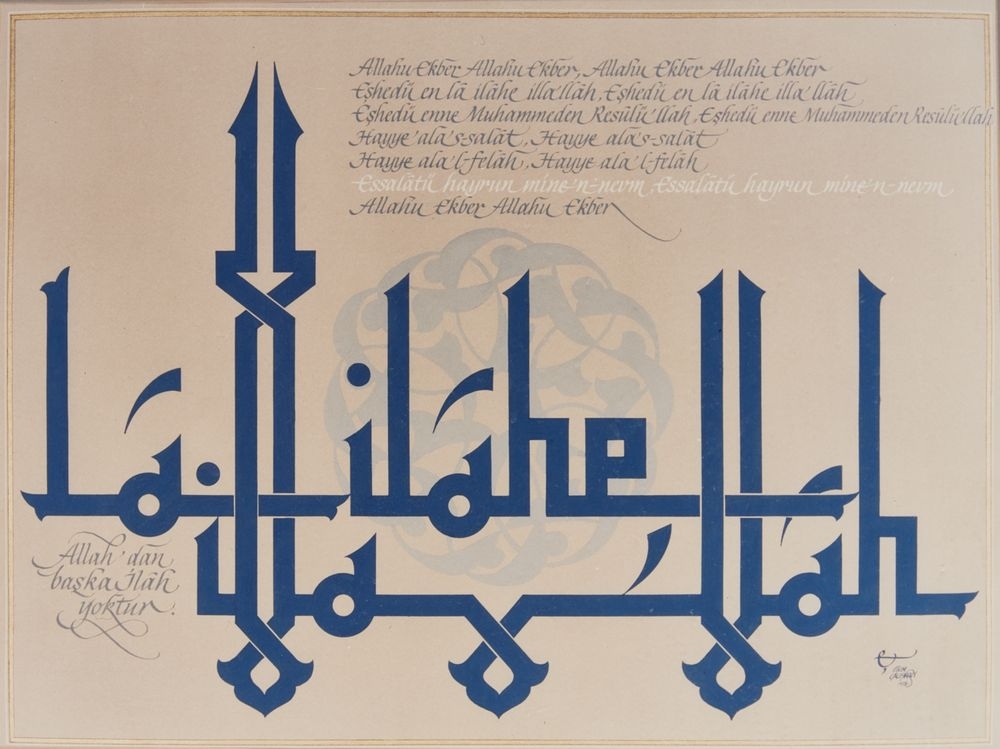 Allahu Ekber Allahu Ekber, Allahu Ekber Allahu Ekber
Eşhedü en lâ ilâhe illa'llâh, Eşhedü en lâ ilâhe illa'llâh
Eşhedü enne Muhammeden Resülü'llah, Eşhedü enne Muhammeden Resülü'llah
Hayye 'ala's-salât, Hayye ala's-salât
Hayye ala'l-felâh, Hayye ala'l-felâh
Essalâtü hayrun mine'n-nevm Essalâtü hayrun mine'n-nevm
Allahu Ekber Allahu Ekber
Lâ ilâhe
illallâh
Allah'dan
başka İlâh
yoktur.